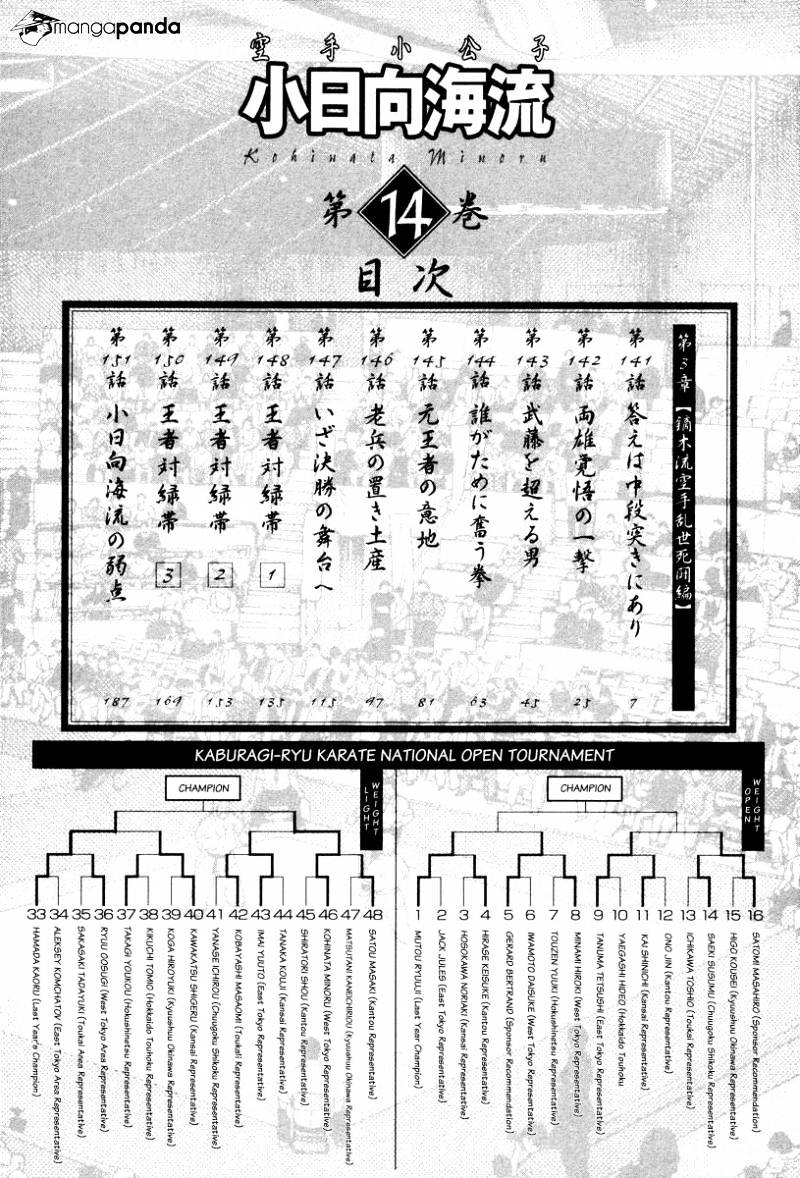 mangapanda
空手小公子
小日向海流
Kohinata Minoru
第14巻
目次
第3章【鏑木流空手乱世死闘編】
第141話 答えは中段突きにあり 7
第142話 両雄覚悟の一撃 25
第143話 武藤を超える男 45
第144話 誰がために奮う拳 63
第145話 元王者の意地 81
第146話 老兵の置き土産 97
第147話 いざ決勝の舞台へ 115
第148話 王者対緑帯 1 135
第149話 王者対緑帯 2 153
第150話 王者対緑帯 3 169
第151話 小日向海流の弱点 187
KABURAGI-RYU KARATE NATIONAL OPEN TOURNAMENT
LIGHT WEIGHT
CHAMPION
33 HAMADA KAORU (Last Year's Champion)
34 ALEKSEY KOMCHATOV (East Tokyo Area Representative)
35 SAKASAKI TADAYUKI (Toukai Area Representative)
36 RYUU OOSUGI (West Tokyo Area Representative)
37 TAKAGI YOUKOU (Hokushinetsu Representative)
38 KIKUCHI TOMIO (Hokkaido Touhoku Representative)
39 KOGA HIROYUKI (Kyuushuu Okinawa Representative)
40 KAWAKATSU SHIGERU (Kansai Representative)
41 YANASE ICHIROU (Chuugoku Shikoku Representative)
42 KOBAYASHI MASAOMI (Toukai Representative)
43 IMAI YUUTO (East Tokyo Representative)
44 TANAKA KOUJI (Kansai Representative)
45 SHIRATORI SHOU (Kantou Representative)
46 KOHINATA MINORU (West Tokyo Representative)
47 MATSUTANI KANKICHIROU (Kyuushuu Okinawa Representative)
48 SATOU MASAKI (Kantou Representative)
OPEN WEIGHT
CHAMPION
1 MUTOU RYUUJI (Last Year Champion)
2 JACK JULES (East Tokyo Representative)
3 HOSOKAWA NORIAKI (Kansai Representative)
4 HIRASE KEISUKE (Kantou Representative)
5 GERARD BERTRAND (Sponsor Recommendation)
6 IWAMOTO DAISUKE (West Tokyo Representative)
7 TOUZEN YUUKI (Hokushinetsu Representative)
8 MINAMI HIROKI (West Tokyo Representative)
9 TANUMA TETSUSHI (East Tokyo Representative)
10 YAEGASHI HIDEO (Hokkaido Touhoku
11 KAI SHINICHI (Kansai Representative)
12 ONO JIN (Kantou Representative)
13 ICHIKAWA TOSHIO (Toukai Representative)
14 SAEKI SUSUMU (Chuugoku Shikoku Representative)
15 HIGO KOUSEI (Kyuushuu Okinawa Representative)
16 SATOMI MASAHIRO (Sponsor Recommendation)